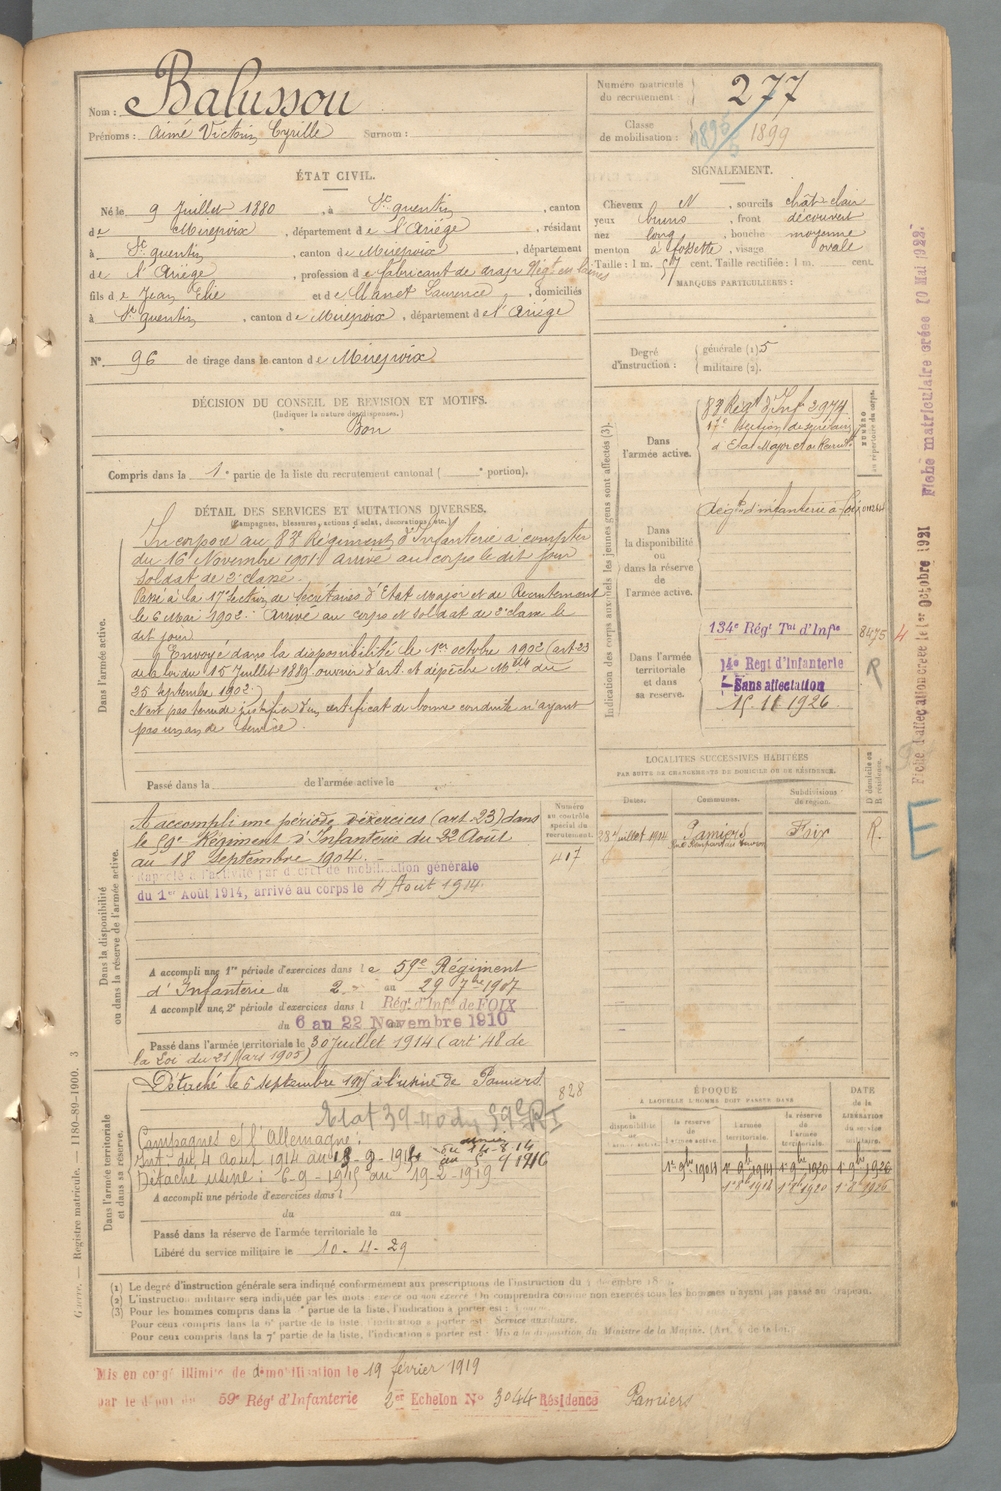 Nom : Balussou
Prénoms : Aimé Victorin Cyrille Surnom :
Numéro matricule du recrutement : 277
Classe de mobilisation : 1899
ÉTAT CIVIL.
Né le 9 Juillet 1880, à St quentin, canton
de Mirepoix, département de l'Ariège, résidant
à St quentin, canton de Mirepoix, département
de l'Ariège, profession de fabricant de drap Négt en laines
fils de Jean Elie et de Manet Laurence, domiciliés
à St quentin, canton de Mirepoix, département de l'Ariège
N° 96 de tirage dans le canton de Mirepoix
SIGNALEMENT.
Cheveux N, sourcils chât clair
yeux bruns, front découvert
nez long, bouche moyenne
menton à fossette, visage ovale
Taille : 1 m. 57 cent. Taille rectifiée : 1 m. cent.
MARQUES PARTICULIÈRES :
Degré d'instruction : générale (1). 5
militaire (2).
DÉCISION DU CONSEIL DE REVISION ET MOTIFS.
(Indiquer la nature des dispenses.)
Bon
Compris dans la 1e partie de la liste du recrutement cantonal ( e portion).
DÉTAIL DES SERVICES ET MUTATIONS DIVERSES.
(Campagnes, blessures, actions d'éclat, décorations, etc.)
Dans l'armée active.
Incorporé au 83e Régiment d'Infanterie à compter
du 16 Novembre 1901 arrivé au corps le dit jour
soldat de 2e classe.
Passé à la 17e section de secrétaires d'Etat Major et de Recrutement
le 6 Mai 1902. Arrivé au corps et soldat de 2e classe le
dit jour
Envoyé dans la disponibilité le 1er octobre 1902 (art 23
de la loi du 15 Juillet 1889 ouvrier d'art. et dépêche Mlle du
25 Septembre 1902)
N'est pas tenu de justifier d'un certificat de bonne conduite n'ayant
pas un an de service.
Passé dans la de l'armée active le
Indication des corps auxquels les jeunes gens sont affectés (3).
Dans l'armée active.
83e Régt d'Inf 3974
17e Section de secrétaires
d'Etat Major et de Recrutt
NUMÉRO au répertoire du corps.
Dans la disponibilité ou dans la réserve de l'armée active.
Régt d'infanterie à Foix
Dans l'armée territoriale et dans sa réserve.
134e Régt Tal d'Infie
8475
14e Regt d'Infanterie
R
Sans affectation
15 11 1926
LOCALITÉS SUCCESSIVES HABITÉES
PAR SUITE DE CHANGEMENTS DE DOMICILE OU DE RÉSIDENCE.
Dates. Communes. Subdivisions de région. D. domicile ou R. résidence.
28 Juillet 1914 Pamiers Foix R.
E
Dans la disponibilité ou dans la réserve de l'armée active.
A accompli une période d'exercices (art. 23) dans
le 59e Régiment d'Infanterie du 22 Août
au 18 Septembre 1904.
Rappelé à l'activité par décret de mobilisation générale
du 1er Août 1914, arrivé au corps le 4 Août 1914
Numéro au contrôle spécial du recrutement.
417
A accompli une 1re période d'exercices dans le 59e Régiment
d'Infanterie du 2 au 29 7bre 1907
A accompli une 2e période d'exercices dans l Régt d'Infie de FOIX
du 6 au 22 Novembre 1910
Passé dans l'armée territoriale le 30 Juillet 1914 (art. 48 de
la Loi du 21 Mars 1905)
Dans l'armée territoriale et dans sa réserve.
Détaché le 6 septembre 1915 à l'usine de Pamiers
828
Etat 39-40 du 59e RI
Campagnes c/ l'Allemagne :
Int. du 4 août 1914 au 13-8-1914
Détaché usine : 6-9-1915 au 19-2-1919
A accompli une période d'exercices dans l
du au
Passé dans la réserve de l'armée territoriale le
Libéré du service militaire le 10-11-29
ÉPOQUE
A LAQUELLE L'HOMME DOIT PASSER DANS
la disponibilité de l'armée active. la réserve de l'armée active. l'armée territoriale. la réserve de l'armée territoriale. DATE de la LIBÉRATION du service militaire.
1r 9bre 1904 1r 9bre 1914 1r 9bre 1920 1r 9bre 1926
1r 8e 1914 1r 8e 1920 1r 8e 1926
(1) Le degré d'instruction générale sera indiqué conformément aux prescriptions de l'instruction du
(2) L'instruction militaire sera indiquée par les mots : exercé ou non exercé. On comprendra comme non exercés tous les hommes n'ayant pas passé au drapeau.
(3) Pour les hommes compris dans la 1e partie de la liste, l'indication à porter est :
Pour ceux compris dans la 6e partie de la liste, l'indication à porter est : Service auxiliaire.
Pour ceux compris dans la 7e partie de la liste, l'indication à porter est : Mis à la disposition du Ministre de la Marine.
Mis en congé illimité de démobilisation le 19 février 1919
par le dépôt du 59e Régt d'Infanterie 2er Echelon N° 3044 Résidence Pamiers
Guerre. — Registre matricule. — 1180-89-1900. 3
Fiche d'affectation créée le 1er Octobre 1921
Fiche matriculaire créée 10 Mai 1923